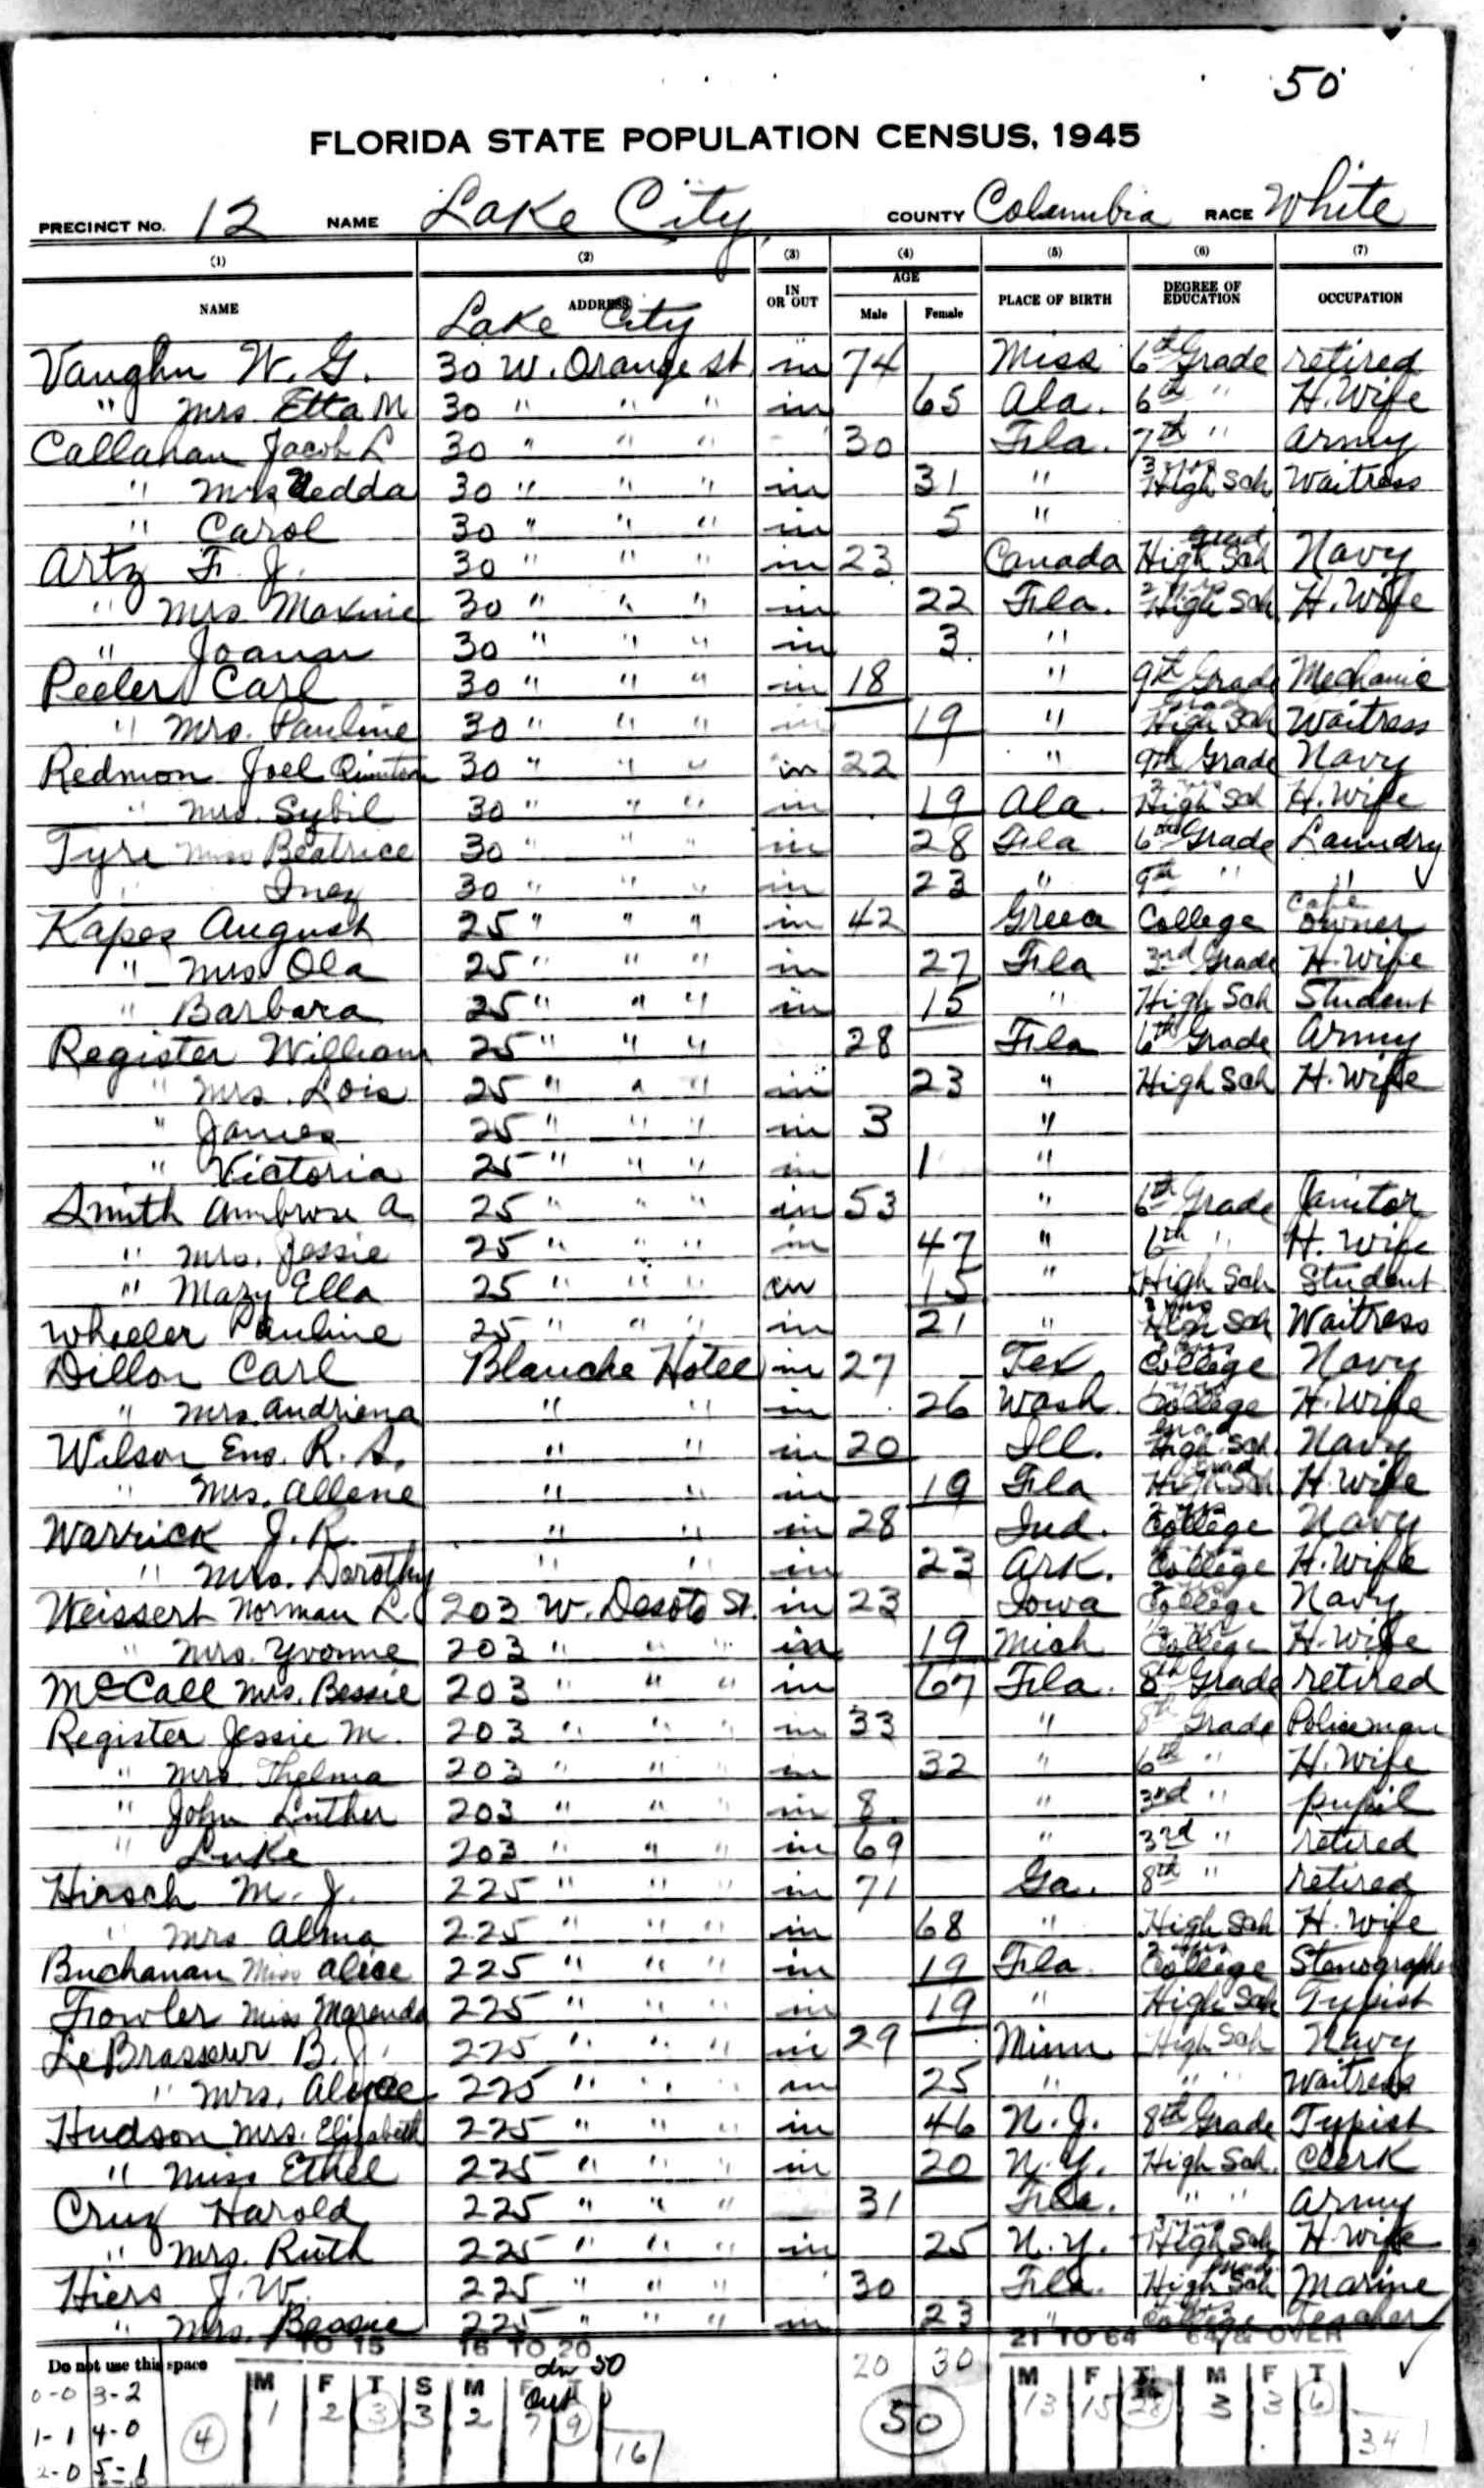 50
FLORIDA STATE POPULATION CENSUS, 1945
PRECINCT No. 12 NAME Lake City COUNTY Columbia RACE White
(1) (2) (3) (4) (5) (6) (7)
NAME ADDRESS IN OR OUT AGE Male Female PLACE OF BIRTH DEGREE OF EDUCATION OCCUPATION
Lake City
Vaughn W. G. 30 W. Orange St. in 74 Miss 6th Grade retired
" Mrs. Etta M 30 " " " in 65 Ala. 6th " H. Wife
Callahan Jacob L 30 " " " 30 Fla. 7th " Army
" Mrs Nedda 30 " " " in 31 " 3 yrs High Sch Waitress
" Carol 30 " " " in 5 "
Artz F. J. 30 " " " in 23 Canada grad High Sch Navy
" Mrs. Maxine 30 " " " in 22 Fla. 2 yrs High Sch H. Wife
" Joann 30 " " " in 3 "
Peeler Carl 30 " " " in 18 " 9th Grade Mechanic
" Mrs. Pauline 30 " " " in 19 " grad High Sch Waitress
Redmon Joel 30 " " " in 22 " 9th Grade Navy
" Mrs. Sybil 30 " " " in 19 Ala. High Sch H. Wife
Tyre Miss Beatrice 30 " " " in 28 Fla 6th Grade Laundry
" Inez 30 " " " in 23 " 9th " "
Kapes August 25 " " " in 42 Greece College Cafe owner
" Mrs. Ola 25 " " " in 27 Fla 3rd Grade H. Wife
" Barbara 25 " " " in 15 " High Sch Student
Register William 25 " " " 28 Fla 6th Grade Army
" Mrs. Lois 25 " " " in 23 " High Sch H. Wife
" James 25 " " " in 3 "
" Victoria 25 " " " in 1 "
Smith Ambrose A. 25 " " " in 53 " 6th Grade Janitor
" Mrs. Jessie 25 " " " in 47 " 6th " H. Wife
" Mary Ella 25 " " " in 15 " High Sch Student
Wheeler Pauline 25 " " " in 21 " High Sch Waitress
Dillon Carl Blanche Hotel in 27 Tex. College Navy
" Mrs. Andriena " " in 26 Wash. College H. Wife
Wilson Ens. R. A. " " in 20 Ill. grad High Sch. Navy
" Mrs. Allene " " in 19 Fla grad High Sch. H. Wife
Warrick J. R. " " in 28 Ind. 2 yrs College Navy
" Mrs. Dorothy " " in 23 Ark. College H. Wife
Weissert Norman L. 203 W. Desoto St. in 23 Iowa College Navy
" Mrs. Yvonne 203 " " " in 19 Mich College H. Wife
McCall Mrs. Bessie 203 " " " in 67 Fla. 8th Grade retired
Register Jessie M. 203 " " " in 33 " 8th Grade Policeman
" Mrs. Thelma 203 " " " in 32 " 6th " H. Wife
" John Luther 203 " " " in 8 " 3rd " pupil
" Luke 203 " " " in 69 " 3rd " retired
Hirsch M. J. 225 " " " in 71 Ga. 8th " retired
" Mrs Alma 225 " " " in 68 " High Sch H. Wife
Buchanan Miss Alice 225 " " " in 19 Fla. 2 yrs College Stenographer
Fowler Miss Marenda 225 " " " in 19 " High Sch Typist
LeBrasseur B. J. 225 " " " in 29 Minn High Sch Navy
" Mrs. Alyce 225 " " " in 25 " " " Waitress
Hudson Mrs. Elizabeth 225 " " " in 46 N. J. 8th Grade Typist
" Miss Ethel 225 " " " in 20 N. Y. High Sch. Clerk
Cruz Harold 225 " " " 31 Fla. " " Army
" Mrs. Ruth 225 " " " in 25 N. Y. 3 yrs High Sch H. Wife
Hiers J. W. 225 " " " 30 Fla. grad High Sch Marine
" Mrs. Bessie 225 " " " in 23 " College Teacher
TO 15 16 TO 20 21 TO 64 64 & OVER
Do not use this space in 50 20 30
M F T S M F T M F T M F T
0-0 3-2 Out
1 2 3 3 2 7 9 13 15 28 3 3 6
1-1 4-0 4 50
16 34
2-0 5-1